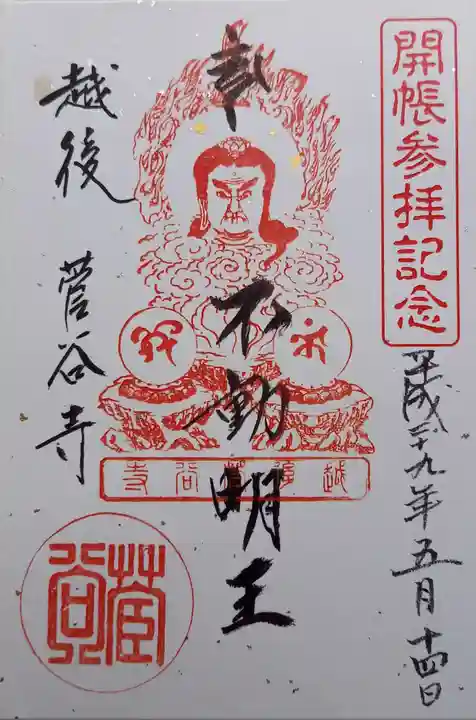 開帳参拝記念
平成二十九年五月十四日
奉
不動明王
越後 菅谷寺
越後菅谷寺